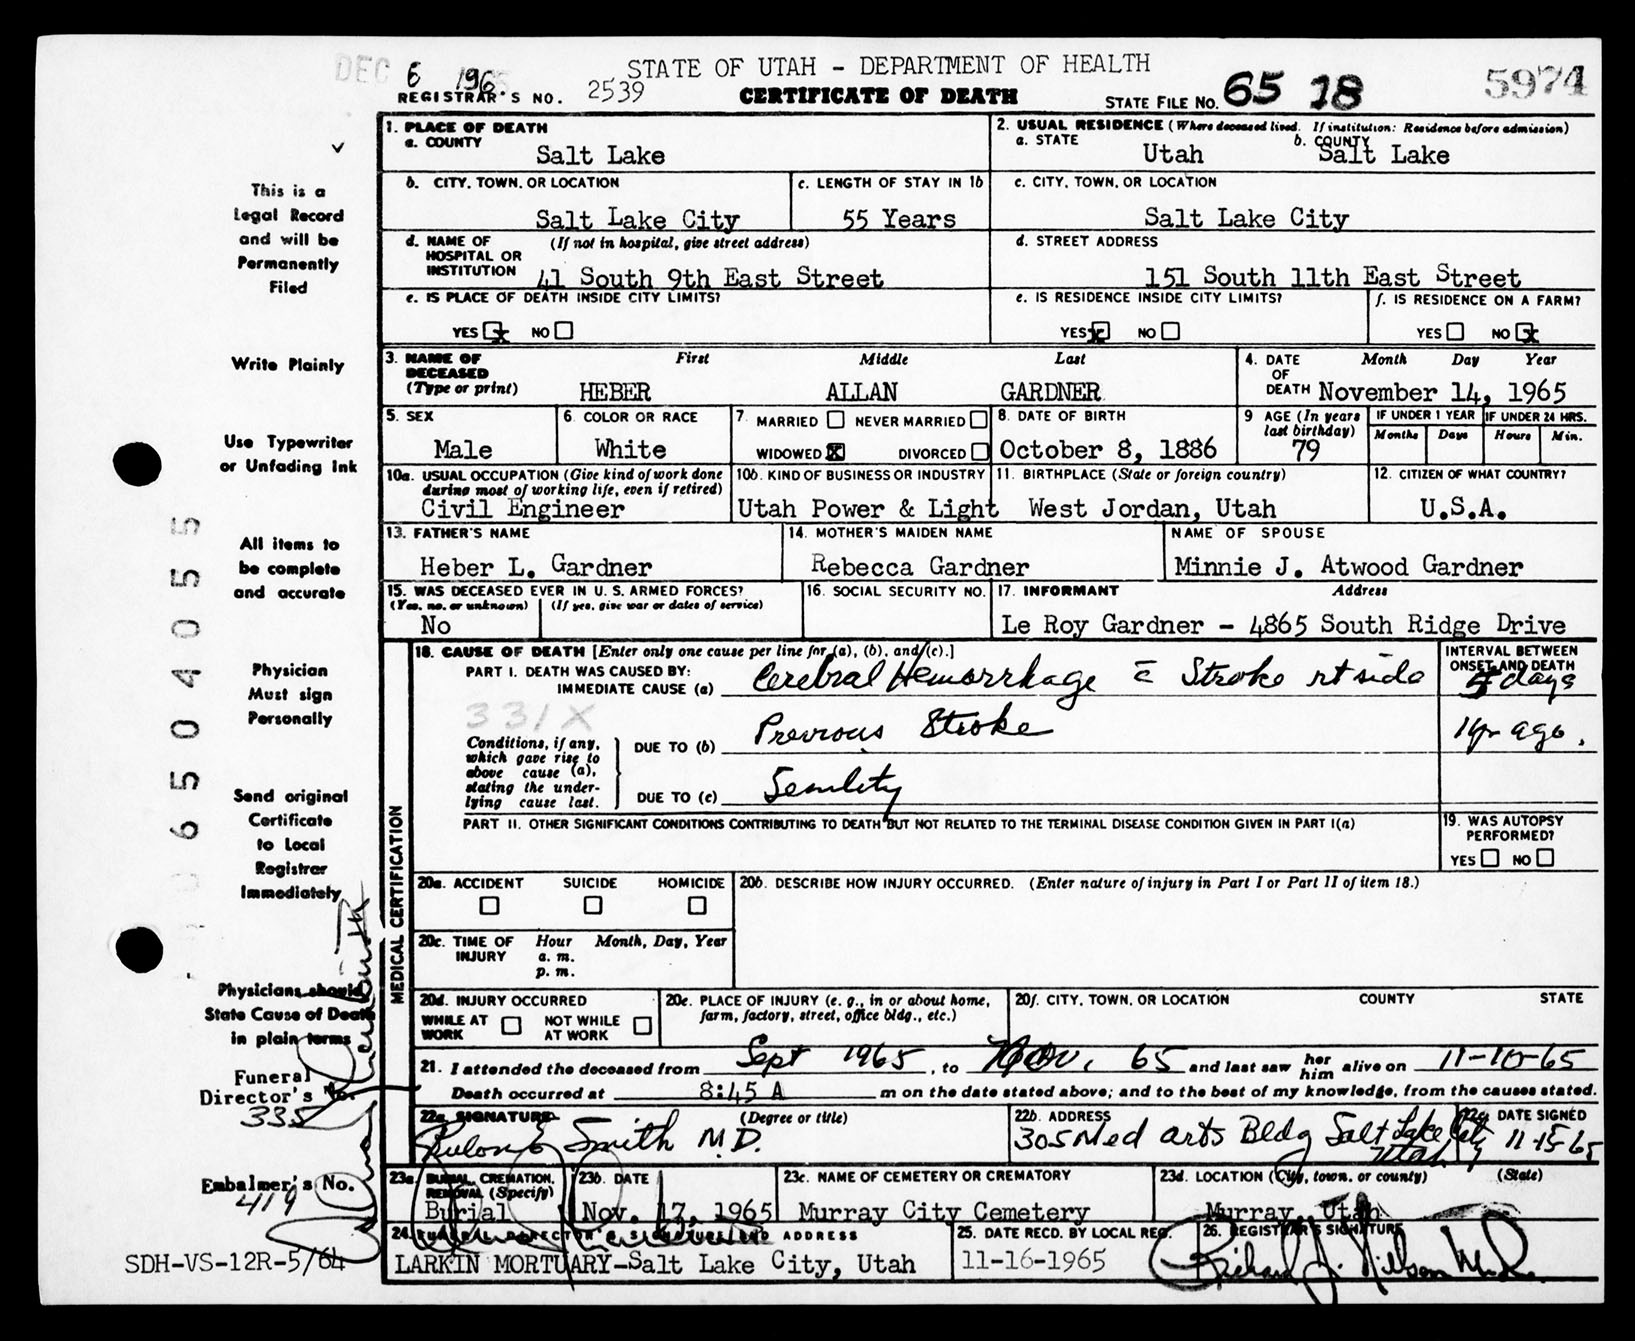 DEC 6 1965
STATE OF UTAH - DEPARTMENT OF HEALTH
REGISTRAR'S NO. 2539
CERTIFICATE OF DEATH
STATE FILE NO. 65 18 5974
1. PLACE OF DEATH
a. COUNTY
Salt Lake
2. USUAL RESIDENCE (Where deceased lived. If institution: Residence before admission)
a. STATE
Utah
b. COUNTY
Salt Lake
b. CITY, TOWN, OR LOCATION
Salt Lake City
c. LENGTH OF STAY IN 1b
55 Years
c. CITY, TOWN, OR LOCATION
Salt Lake City
d. NAME OF HOSPITAL OR INSTITUTION
(If not in hospital, give street address)
41 South 9th East Street
d. STREET ADDRESS
151 South 11th East Street
e. IS PLACE OF DEATH INSIDE CITY LIMITS?
YES x NO
e. IS RESIDENCE INSIDE CITY LIMITS?
YES x NO
f. IS RESIDENCE ON A FARM?
YES NO x
3. NAME OF DECEASED
(Type or print)
First Middle Last
HEBER ALLAN GARDNER
4. DATE OF DEATH
Month Day Year
November 14, 1965
5. SEX
Male
6. COLOR OR RACE
White
7. MARRIED NEVER MARRIED
WIDOWED x DIVORCED
8. DATE OF BIRTH
October 8, 1886
9 AGE (In years last birthday)
79
IF UNDER 1 YEAR
Months Days
IF UNDER 24 HRS.
Hours Min.
10a. USUAL OCCUPATION (Give kind of work done during most of working life, even if retired)
Civil Engineer
10b. KIND OF BUSINESS OR INDUSTRY
Utah Power & Light
11. BIRTHPLACE (State or foreign country)
West Jordan, Utah
12. CITIZEN OF WHAT COUNTRY?
U.S.A.
13. FATHER'S NAME
Heber L. Gardner
14. MOTHER'S MAIDEN NAME
Rebecca Gardner
NAME OF SPOUSE
Minnie J. Atwood Gardner
15. WAS DECEASED EVER IN U. S. ARMED FORCES?
(Yes, no, or unknown) (If yes, give war or dates of service)
No
16. SOCIAL SECURITY NO.
17. INFORMANT Address
Le Roy Gardner - 4865 South Ridge Drive
MEDICAL CERTIFICATION
18. CAUSE OF DEATH [Enter only one cause per line for (a), (b), and (c).]
PART I. DEATH WAS CAUSED BY:
IMMEDIATE CAUSE (a)
Cerebral Hemorrhage c̄ Stroke rt side
INTERVAL BETWEEN ONSET AND DEATH
days
331X
Conditions, if any, which gave rise to above cause (a), stating the underlying cause last.
DUE TO (b)
Previous Stroke
1 yr ago.
DUE TO (c)
Senility
PART II. OTHER SIGNIFICANT CONDITIONS CONTRIBUTING TO DEATH BUT NOT RELATED TO THE TERMINAL DISEASE CONDITION GIVEN IN PART I(a)
19. WAS AUTOPSY PERFORMED?
YES NO
20a. ACCIDENT SUICIDE HOMICIDE
20b. DESCRIBE HOW INJURY OCCURRED. (Enter nature of injury in Part I or Part II of item 18.)
20c. TIME OF INJURY
Hour Month, Day, Year
a. m.
p. m.
20d. INJURY OCCURRED
WHILE AT WORK NOT WHILE AT WORK
20e. PLACE OF INJURY (e. g., in or about home, farm, factory, street, office bldg., etc.)
20f. CITY, TOWN, OR LOCATION COUNTY STATE
21. I attended the deceased from Sept 1965, to Nov, 65 and last saw her him alive on 11-10-65
Death occurred at 8:45 A m on the date stated above; and to the best of my knowledge, from the causes stated.
22a. SIGNATURE (Degree or title)
Rulon E Smith M.D.
22b. ADDRESS
305 Med Arts Bldg Salt Lake City Utah
22c. DATE SIGNED
11-15-65
23a. BURIAL, CREMATION, REMOVAL (Specify)
Burial
23b. DATE
Nov. 17, 1965
23c. NAME OF CEMETERY OR CREMATORY
Murray City Cemetery
23d. LOCATION (City, town, or county) (State)
Murray, Utah
24. FUNERAL DIRECTOR'S SIGNATURE AND ADDRESS
LARKIN MORTUARY-Salt Lake City, Utah
25. DATE RECD. BY LOCAL REG.
11-16-1965
26. REGISTRAR'S SIGNATURE
Richard J. Nilson M.D.
This is a
Legal Record
and will be
Permanently
Filed
Write Plainly
Use Typewriter
or Unfading Ink
All items to
be complete
and accurate
Physician
Must sign
Personally
Send original
Certificate
to Local
Registrar
Immediately
Physicians should
State Cause of Death
in plain terms
Funeral
Director's No.
335
Embalmer's No.
419
SDH-VS-12R-5/64
6504055